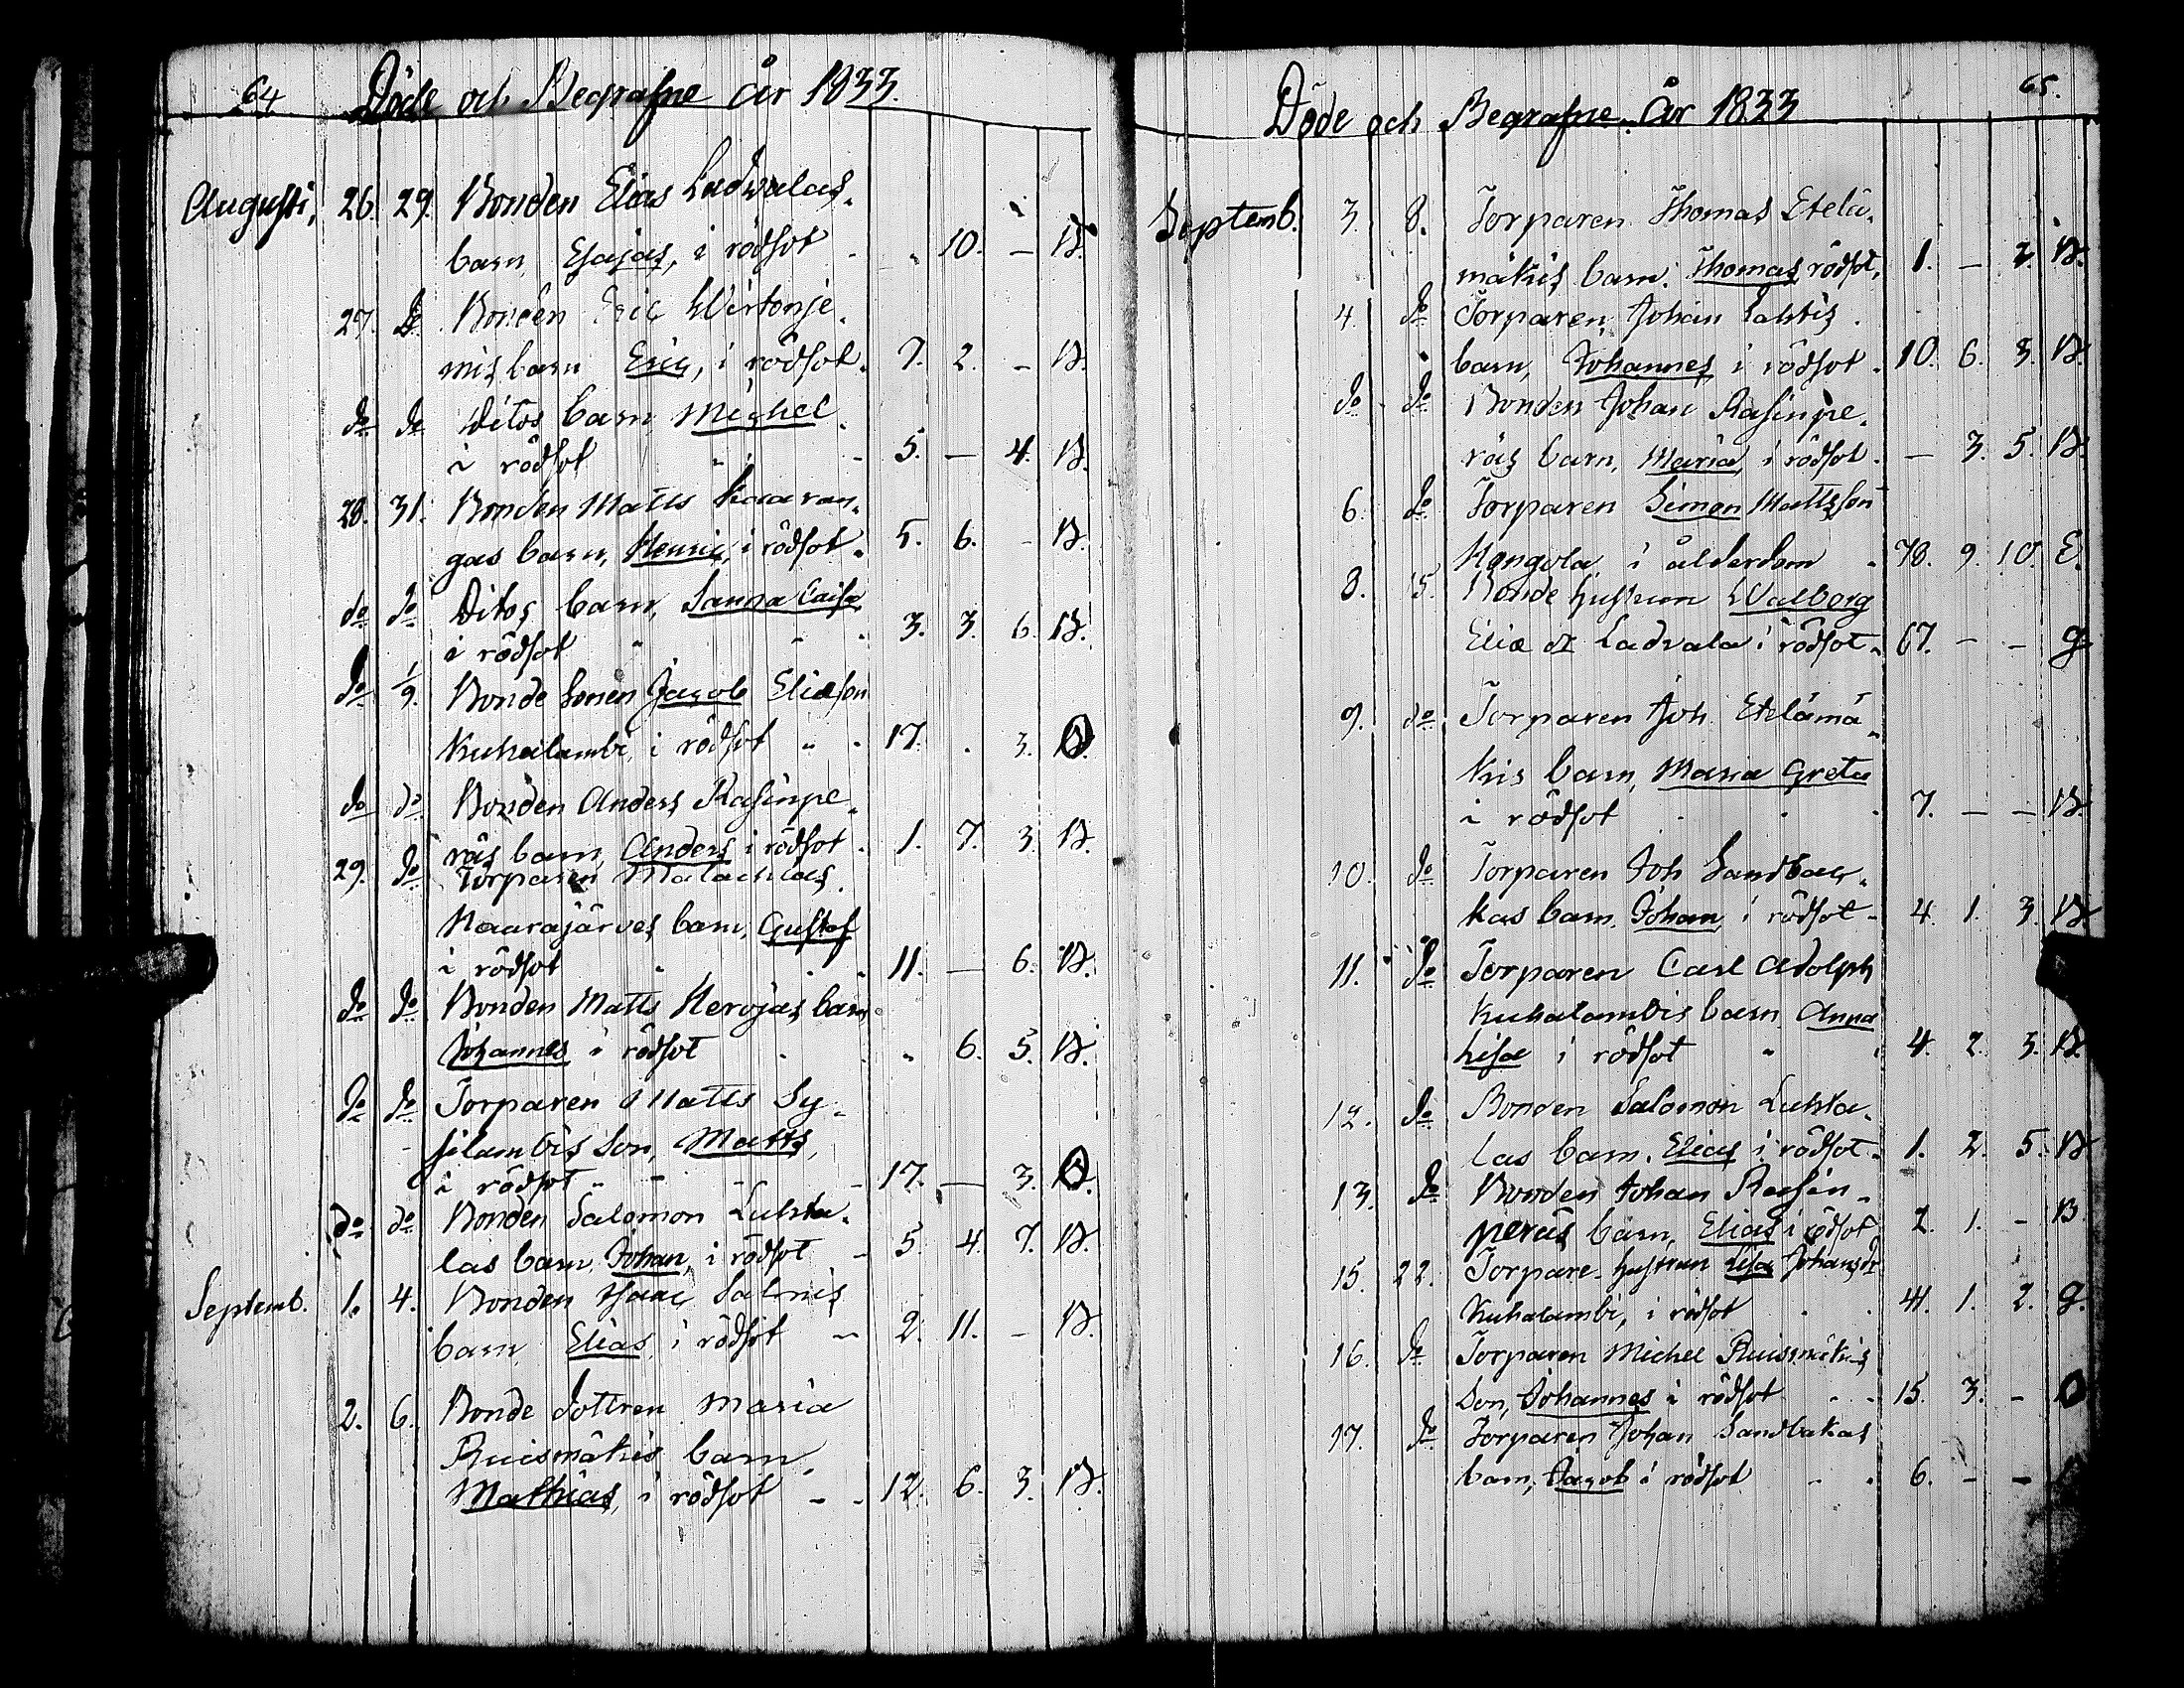 64 Döde och Begrafne år 1833.
Augusti, 26. 29. Bonden Elias Ladvalas
barn, Esajas, i rödsot - " 10. — B.
27. do Bonden Eric Wirtonje-
mis barn Eric, i rödsot. 7. 2. - B.
do do Ditos barn Michel
i rödsot " - 5. — 4. B.
28. 31. Bonden Matts Kaavan-
gas barn, Henric, i rödsot. 5. 6. - B.
do do Ditos barn, Sanna Caisa
i rödsot " " 3. 3. 6. B.
do 1/9. Bonde Sonen Jacob Eliæson
Kuhalambi, i rödsot " 17. . 3. B.
do do Bonden Anders Rasinpe-
räs barn, Anders i rödsot. 1. 7. 3. B.
29. do Torparen Malachias
Haarajärves barn, Gustaf
i rödsot " 11. — 6. B.
do do Bonden Matts Herojas barn
Johannes i rödsot . " 6. 5. B.
do do Torparen Matts Sy-
silambis Son, Matts,
i rödsot " - - 17. — 3. B.
do do Bonden Salomon Luhta-
las barn, Johan, i rödsot - 5. 4. 7. B.
Septemb. 1. 4. Bonden Isaac Salmis
barn, Elias, i rödsot - 2. 11. - B.
2. 6. Bonde dottren Maria
Ruismäkis barn,
Mathias, i rödsot - - 12. 6. 3. B.
65.
Döde och Begrafne år 1833
Septemb. 3. 8. Torparen Thomas Etelä-
mäkis barn, Thomas rödsot, 1. — 2. B.
4. do Torparen Johan Lahtis
barn, Johannes i rödsot. 10. 6. 3. B.
do do Bonden Johan Rasinpe-
räs barn, Maria, i rödsot - — 3. 5. B.
6. do Torparen Simon Mattsson
Kangola, i ålderdom " 78. 9. 10. E.
8. 15. Bonde hustrun Walborg
Eliæ dr Ladvala i rödsot - 67. - - g
9. do Torparen Joh. Etelämä-
kis barn, Maria Greta
i rödsot . . 7. — — B.
10. do Torparen Joh Sandbac-
kas barn, Johan, i rödsot - 4. 1. 3. B.
11. do Torparen Carl Adolph
Kuhalambis barn Anna
Lisa i rödsot " 4. 2. 3. B.
12. do Bonden Salomon Luhta-
las barn, Elias i rödsot - 1. 2. 5. B
13. do Bonden Johan Rasin-
peräs barn, Elias i rödsot 2. 1. - B
15. 22. Torpare hustrun Lisa Johans dr
Kuhalambi, i rödsot . . 41. 1. 2. g.
16. do Torparen Michel Ruismäkis
Son, Johannes i rödsot - - 15. 3. -
17. do Torparen Johan Sandbakas
barn, Jacob i rödsot - . 6. - -